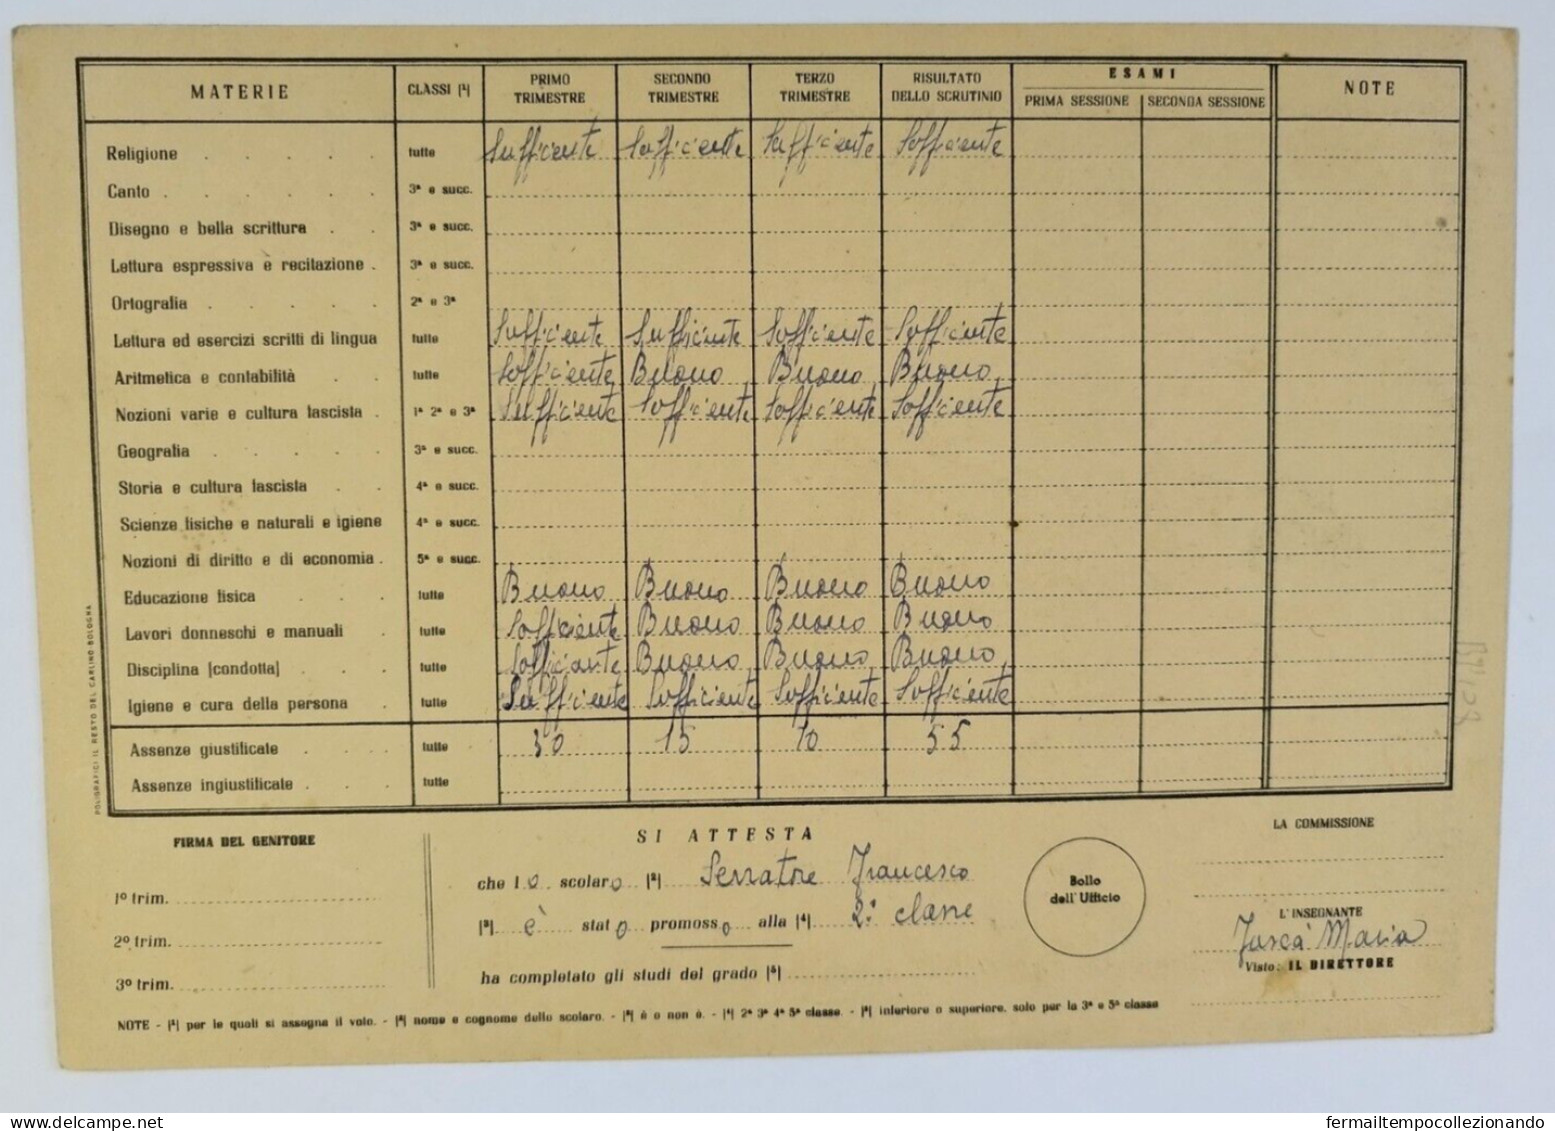 MATERIE CLASSI |¹| PRIMO TRIMESTRE SECONDO TRIMESTRE TERZO TRIMESTRE RISULTATO DELLO SCRUTINIO ESAMI PRIMA SESSIONE SECONDA SESSIONE NOTE
Religione . . . . . tutte Sufficiente Sufficiente Sufficiente Sufficiente
Canto . . . . . . 3ª e succ.
Disegno e bella scrittura . . 3ª e succ.
Lettura espressiva e recitazione . 3ª e succ.
Ortografia . . . . . 2ª e 3ª
Lettura ed esercizi scritti di lingua tutte Sufficiente Sufficiente Sufficiente Sufficiente
Aritmetica e contabilità . . tutte Sufficiente Buono Buono Buono
Nozioni varie e cultura fascista . 1ª 2ª e 3ª Sufficiente Sufficiente Sufficiente Sufficiente
Geografia . . . . . 3ª e succ.
Storia e cultura fascista . . 4ª e succ.
Scienze fisiche e naturali e igiene 4ª e succ.
Nozioni di diritto e di economia . 5ª e succ.
Educazione fisica . . . tutte Buono Buono Buono Buono
Lavori donneschi e manuali . tutte Sufficiente Buono Buono Buono
Disciplina |condotta| . . . tutte Sufficiente Buono Buono Buono
Igiene e cura della persona . tutte Sufficiente Sufficiente Sufficiente Sufficiente
Assenze giustificate . . . tutte 30 15 10 55
Assenze ingiustificate . . . tutte
POLIGRAFICI IL RESTO DEL CARLINO BOLOGNA
FIRMA DEL GENITORE
1º trim.
2º trim.
3º trim.
SI ATTESTA
che l o scolaro |²| Serratore Francesco
|³| è stato promosso alla |⁴| 2ª classe
ha completato gli studi del grado |⁵|
Bollo
dell'Ufficio
LA COMMISSIONE
L'INSEGNANTE
Maria
Visto: IL DIRETTORE
NOTE - |¹| per le quali si assegna il voto. - |²| nome e cognome dello scolaro. - |³| è o non è. - |⁴| 2ª 3ª 4ª 5ª classe. - |⁵| inferiore o superiore, solo per la 3ª e 5ª classe
delcampe.net
fermailtempocollezionando